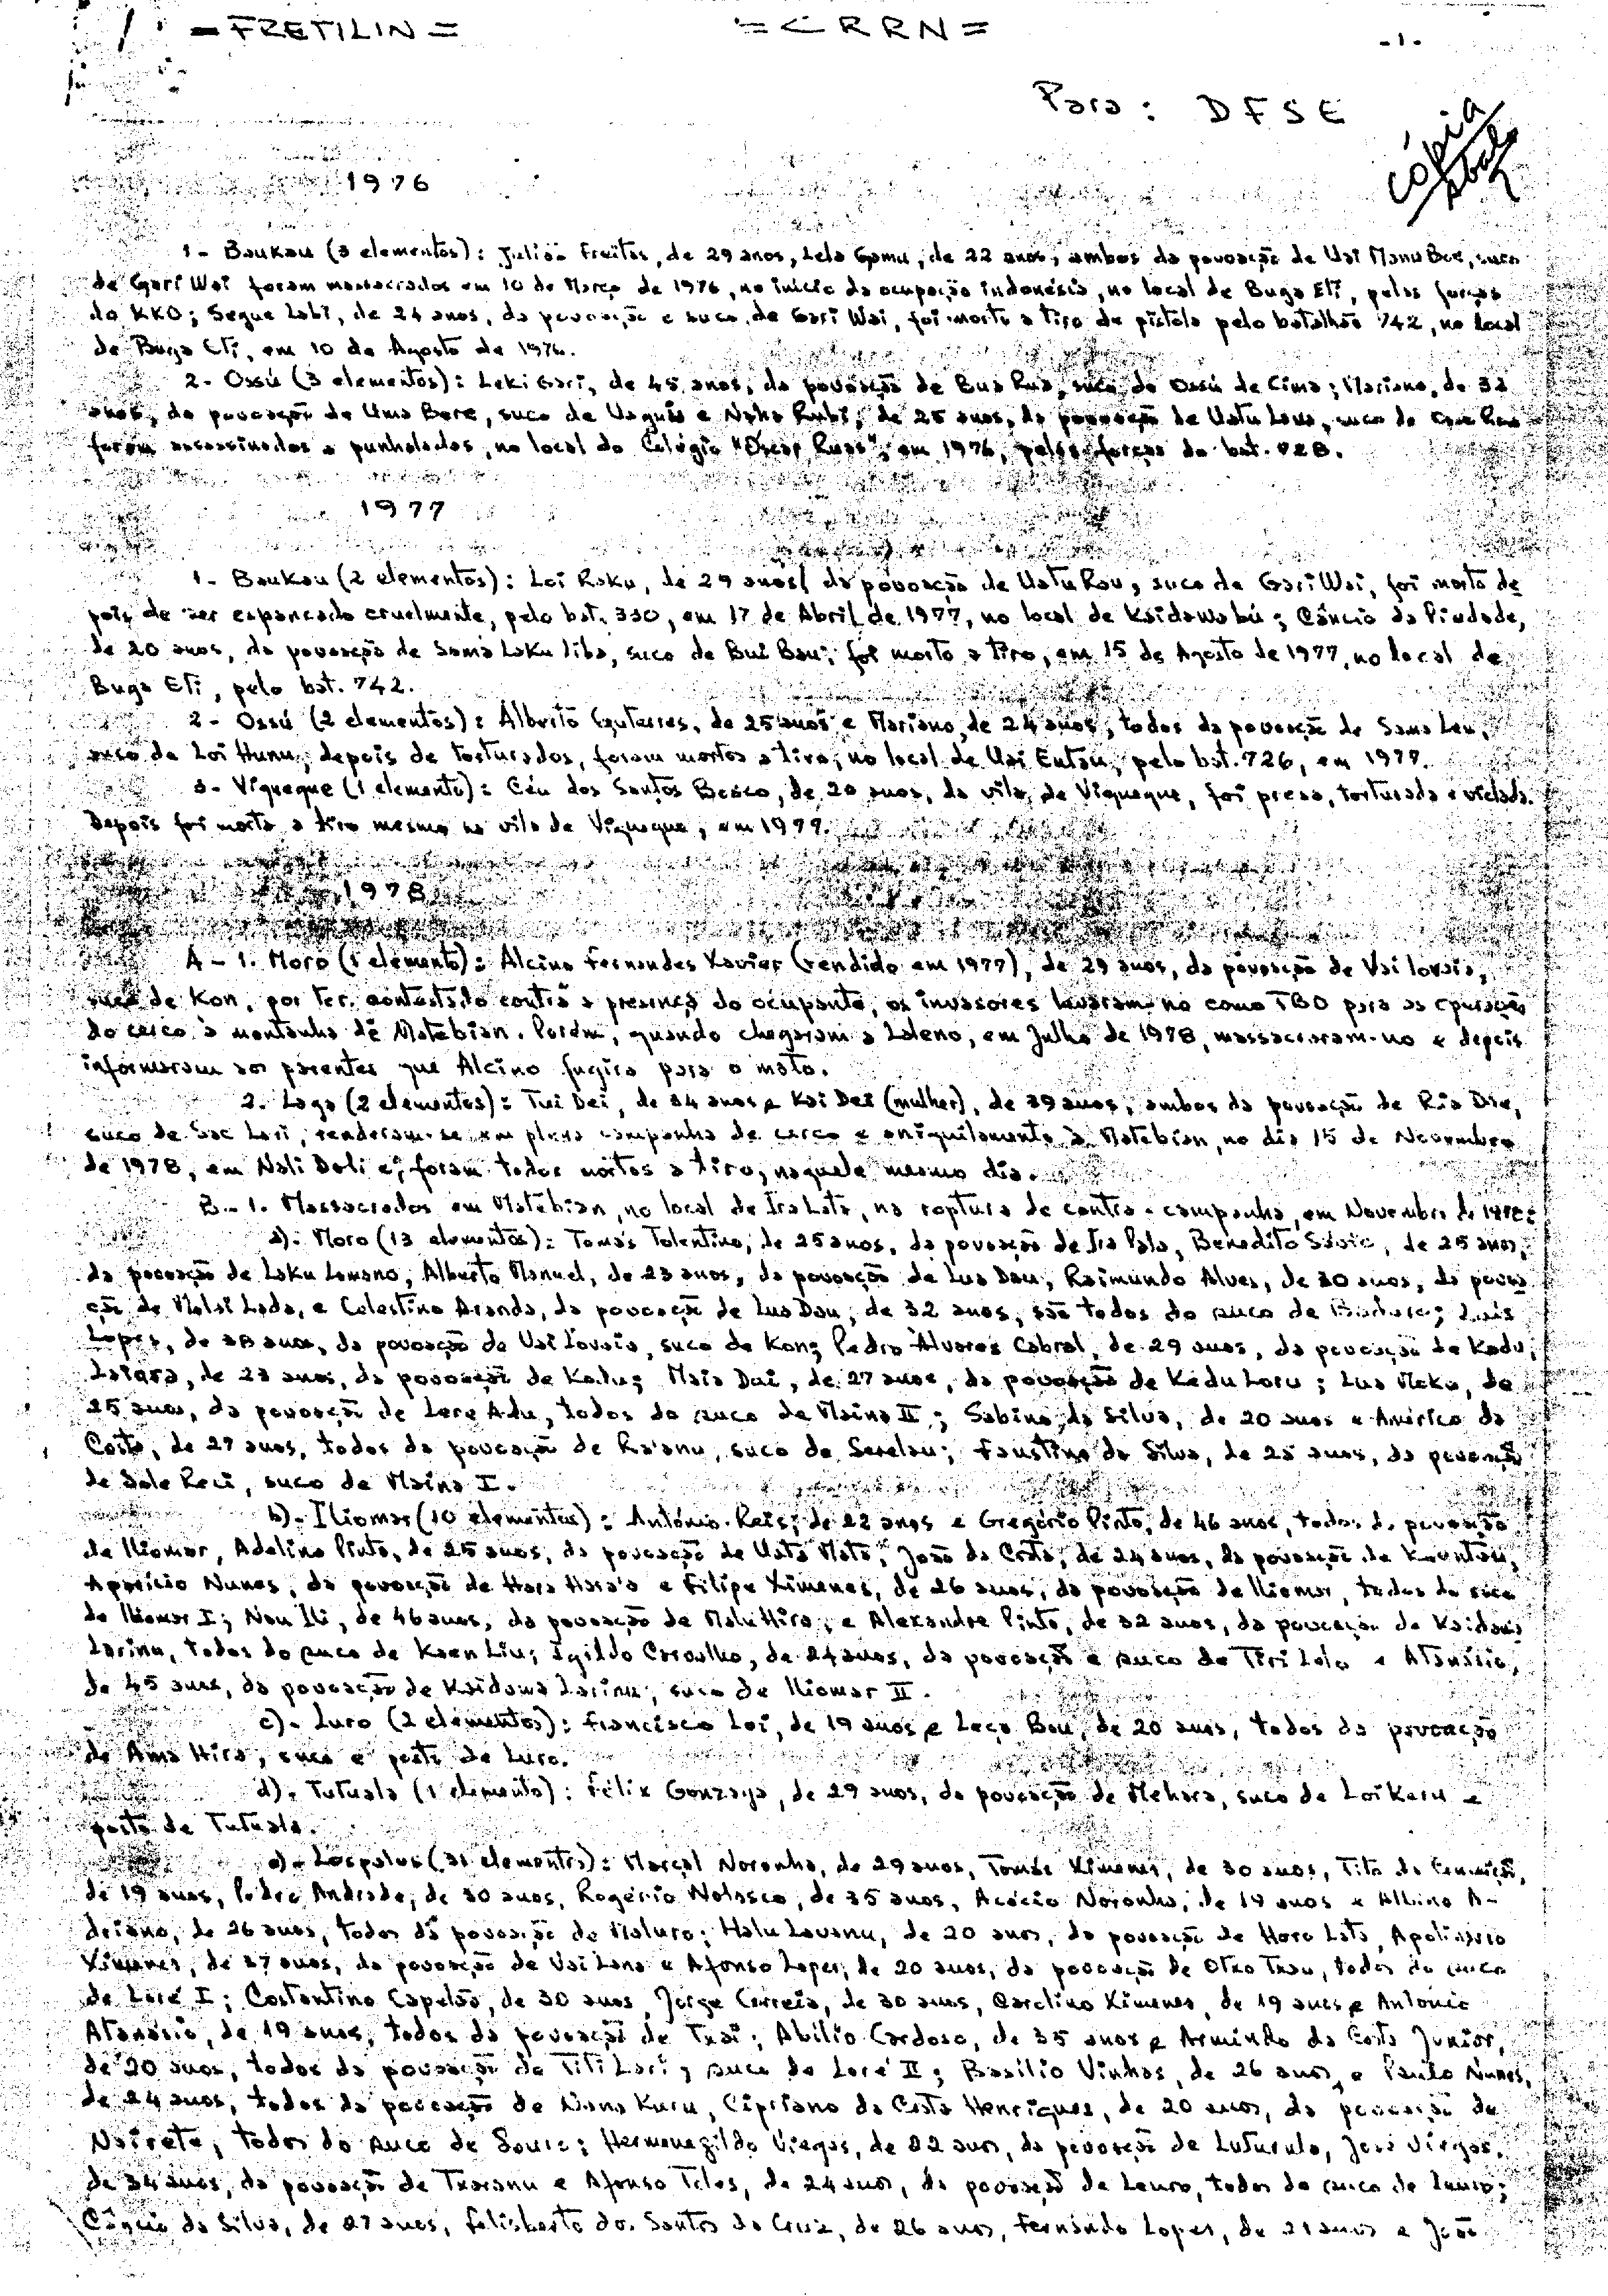 = FRETILIN =
= CRRN =
- 1 -
Para : DFSE
cópia
1976
1- Baukau (3 elementos) : Julião Freitas, de 29 anos, Lela Gamu, de 22 anos, ambos da povoação de Uai Manu Boe, suco
de Gari Wai foram massacrados em 10 de Março de 1976, no início da ocupação indonésia, no local de Buga Eti, pelas forças
do KKO; Segue Labi, de 24 anos, da povoação e suco de Gari Wai, foi morto a tiro de pistola pelo batalhão 742, no local
de Buga Eti, em 10 de Agosto de 1976.
2- Ossú (3 elementos) : Leki Gari, de 45 anos, da povoação de Bua Rua, suco de Ossú de Cima; Mariano, de 32
anos, da povoação de Uma Bere, suco de Uaguia e Naha Rubi, de 25 anos, da povoação de Uatu Laua, suco de
foram assassinados a punhaladas, no local do Colégio "Óscar Ruas", em 1976, pelas forças do bat. 728.
1977
1- Baukau (2 elementos) : Loi Raku, de 29 anos, da povoação de Uatu Rau, suco de Gari Wai, foi morto de
pois de ser espancado cruelmente, pelo bat. 330, em 17 de Abril de 1977, no local de Kaidawabú; Câncio da Piedade,
de 20 anos, da povoação de Sama Laku liba, suco de Bui Bau, foi morto a tiro, em 15 de Agosto de 1977, no local de
Buga Eti, pelo bat. 742.
2- Ossú (2 elementos) : Alberto Guterres, de 25 anos e Mariano, de 24 anos, todos da povoação de Sama Leu,
suco de Loi Hunu, depois de torturados, foram mortos a tiro, no local de Uai Entau, pelo bat. 726, em 1977.
3- Viqueque (1 elemento) : Céu dos Santos Besco, de 20 anos, da vila de Viqueque, foi presa, torturada e violada.
Depois foi morta a tiro mesmo na vila de Viqueque, em 1977.
1978
A - 1. Moro (1 elemento) : Alcino Fernandes Xavier (rendido em 1977), de 29 anos, da povoação de Vailovaia,
suco de Kon, por ter contestado contra a presença do ocupante, os invasores levaram-no como TBO para as operações
do cerco à montanha de Matebian. Porém, quando chegaram a Laleno, em Julho de 1978, massacraram-no e depois
informaram aos parentes que Alcino fugira para o mato.
2. Laga (2 elementos) : Tui Dei, de 34 anos e Kai Dei (mulher), de 39 anos, ambos da povoação de Ria Dae,
suco de Sae Lari, renderam-se em plena campanha de cerco e aniquilamento à Matebian, no dia 15 de Novembro
de 1978, em Nali Doli e, foram todos mortos a tiro, naquele mesmo dia.
B - 1. Massacrados em Matebian, no local de Ira Lata, na roptura de contra-campanha, em Novembro de 1978:
a)- Moro (13 elementos) : Tomás Tolentino, de 25 anos, da povoação de Ira Pala, Benedito Sávio, de 25 anos,
da povoação de Laku Lowano, Alberto Manuel, de 23 anos, da povoação de Lua Dau, Raimundo Alves, de 30 anos, da povoa
ção de Malai Lada, e Celestino Aranda, da povoação de Lua Dau, de 32 anos, são todos do suco de ; Luís
Lopes, de 38 anos, da povoação de Vai Lovaia, suco de Kon; Pedro Álvares Cabral, de 29 anos, da povoação de Kadu,
Laiara, de 23 anos, da povoação de Kadu; Maia Dai, de 27 anos, da povoação de Kadu Laru; Lua Meku, de
25 anos, da povoação de Lere Adu, todos do suco de Maina II; Sabino da Silva, de 20 anos e Américo da
Costa, de 27 anos, todos da povoação de Raanu, suco de Serelau; Faustino da Silva, de 25 anos, da povoação
de Sale Reci, suco de Maina I.
b)- Iliomar (10 elementos) : António Reis, de 22 anos e Gregório Pinto, de 46 anos, todos da povoação
de Iliomar, Adelino Pinto, de 25 anos, da povoação de Uata Mata, João da Costa, de 24 anos, da povoação de Kauntau,
Aparício Nunes, da povoação de Hara Hara'a e Filipe Ximenes, de 26 anos, da povoação de Iliomar, todos do suco
de Iliomar I; Nau Ili, de 46 anos, da povoação de Malu Hira, e Alexandre Pinto, de 32 anos, da povoação de Kaidawa
Larinu, todos do suco de Kaen Liu; Egildo Carvalho, de 24 anos, da povoação e suco de Tiri Lolo e Atanásio,
de 45 anos, da povoação de Kaidawa Larinu, suco de Iliomar II.
c)- Luro (2 elementos) : Francisco Loi, de 19 anos e Laço Bau, de 20 anos, todos da povoação
de Ama Hira, suco e posto de Luro.
d)- Tutuala (1 elemento) : Félix Gonzaga, de 29 anos, da povoação de Mehara, suco de Loikeru e
posto de Tutuala.
e)- Lospalos (31 elementos) : Marçal Noronha, de 29 anos, Tomás Ximenes, de 30 anos, Tito da Conceição,
de 19 anos, Pedro Andrade, de 30 anos, Rogério Nolasco, de 35 anos, Acácio Noronha, de 19 anos e Albino A-
driano, de 26 anos, todos da povoação de Maluro; Malu Lavanu, de 20 anos, da povoação de Hara Lata, Apolinário
Ximenes, de 27 anos, da povoação de Vai Lana e Afonso Lopes, de 20 anos, da povoação de Otxo Txau, todos do suco
de Loré I; Constantino Capelão, de 30 anos, Jorge Correia, de 30 anos, Carolino Ximenes, de 19 anos e António
Atanásio, de 19 anos, todos da povoação de Txai; Abílio Cardoso, de 35 anos e Armindo da Costa Junior,
de 20 anos, todos da povoação de Titi Lari, suco de Loré II; Basílio Vinhas, de 26 anos, e Paulo Nunes,
de 24 anos, todos da povoação de Nana Kuru, Cipriano da Costa Henriques, de 20 anos, da povoação de
Nairete, todos do suco de Souro; Hermenegildo Viegas, de 22 anos, da povoação de Luturulo, José Viegas,
de 34 anos, da povoação de Txaranu e Afonso Teles, de 24 anos, da povoação de Lauro, todos do suco de Lauro;
Câncio da Silva, de 27 anos, Felisberto dos Santos da Cruz, de 26 anos, Fernando Lopes, de 21 anos e João